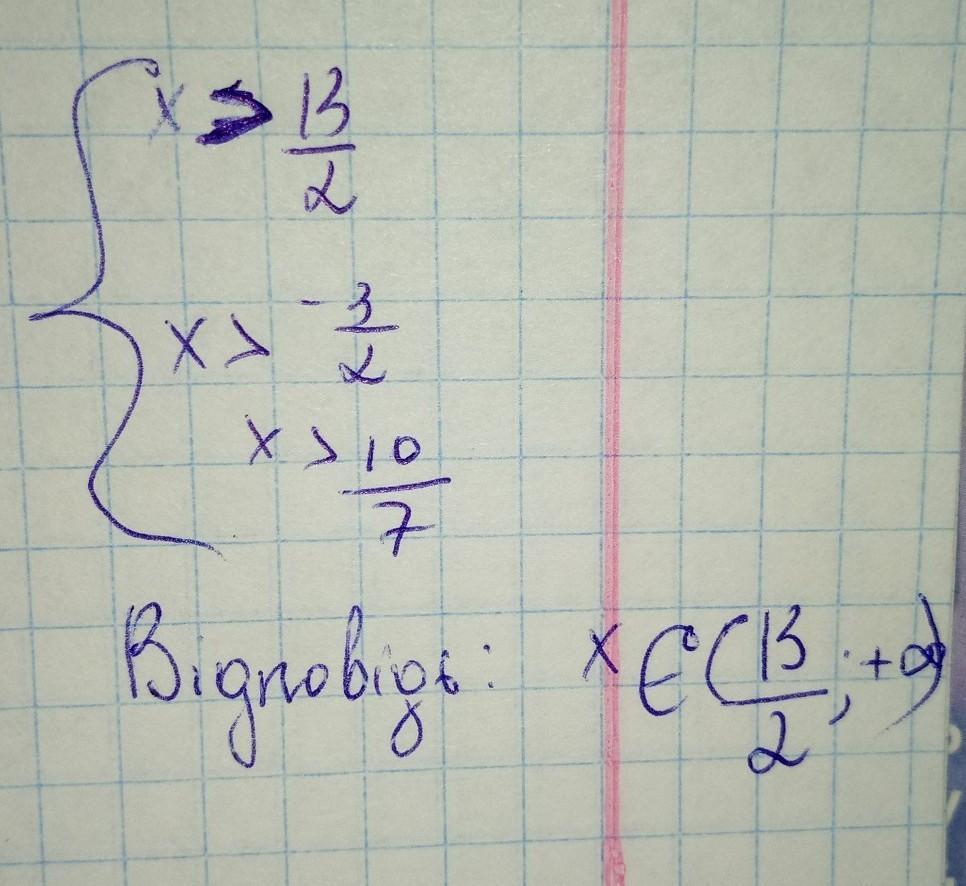 x > 13/2
x > -3/2
x > 10/7
Відповідь: x ∈ (13/2; +∞)